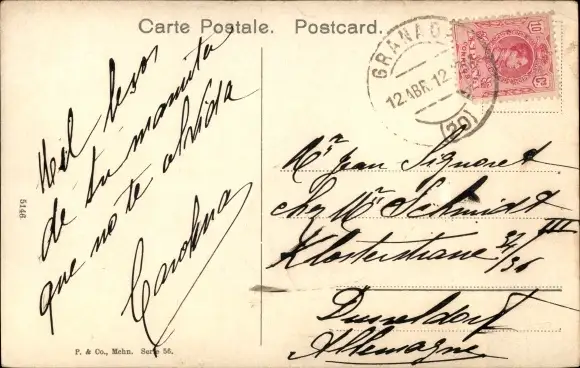 Carte Postale. Postcard.
Mil besos
de tu mamita
que no te olvida
Carolina
5146
P. & Co., Mchn. Serie 56.
GRANADA
12.ABR.12
(20)
10 Cs
Mr Jean Signoret
chez Mr Schmidt
Klosterstrasse 34/36 III
Dusseldorf
Allemagne